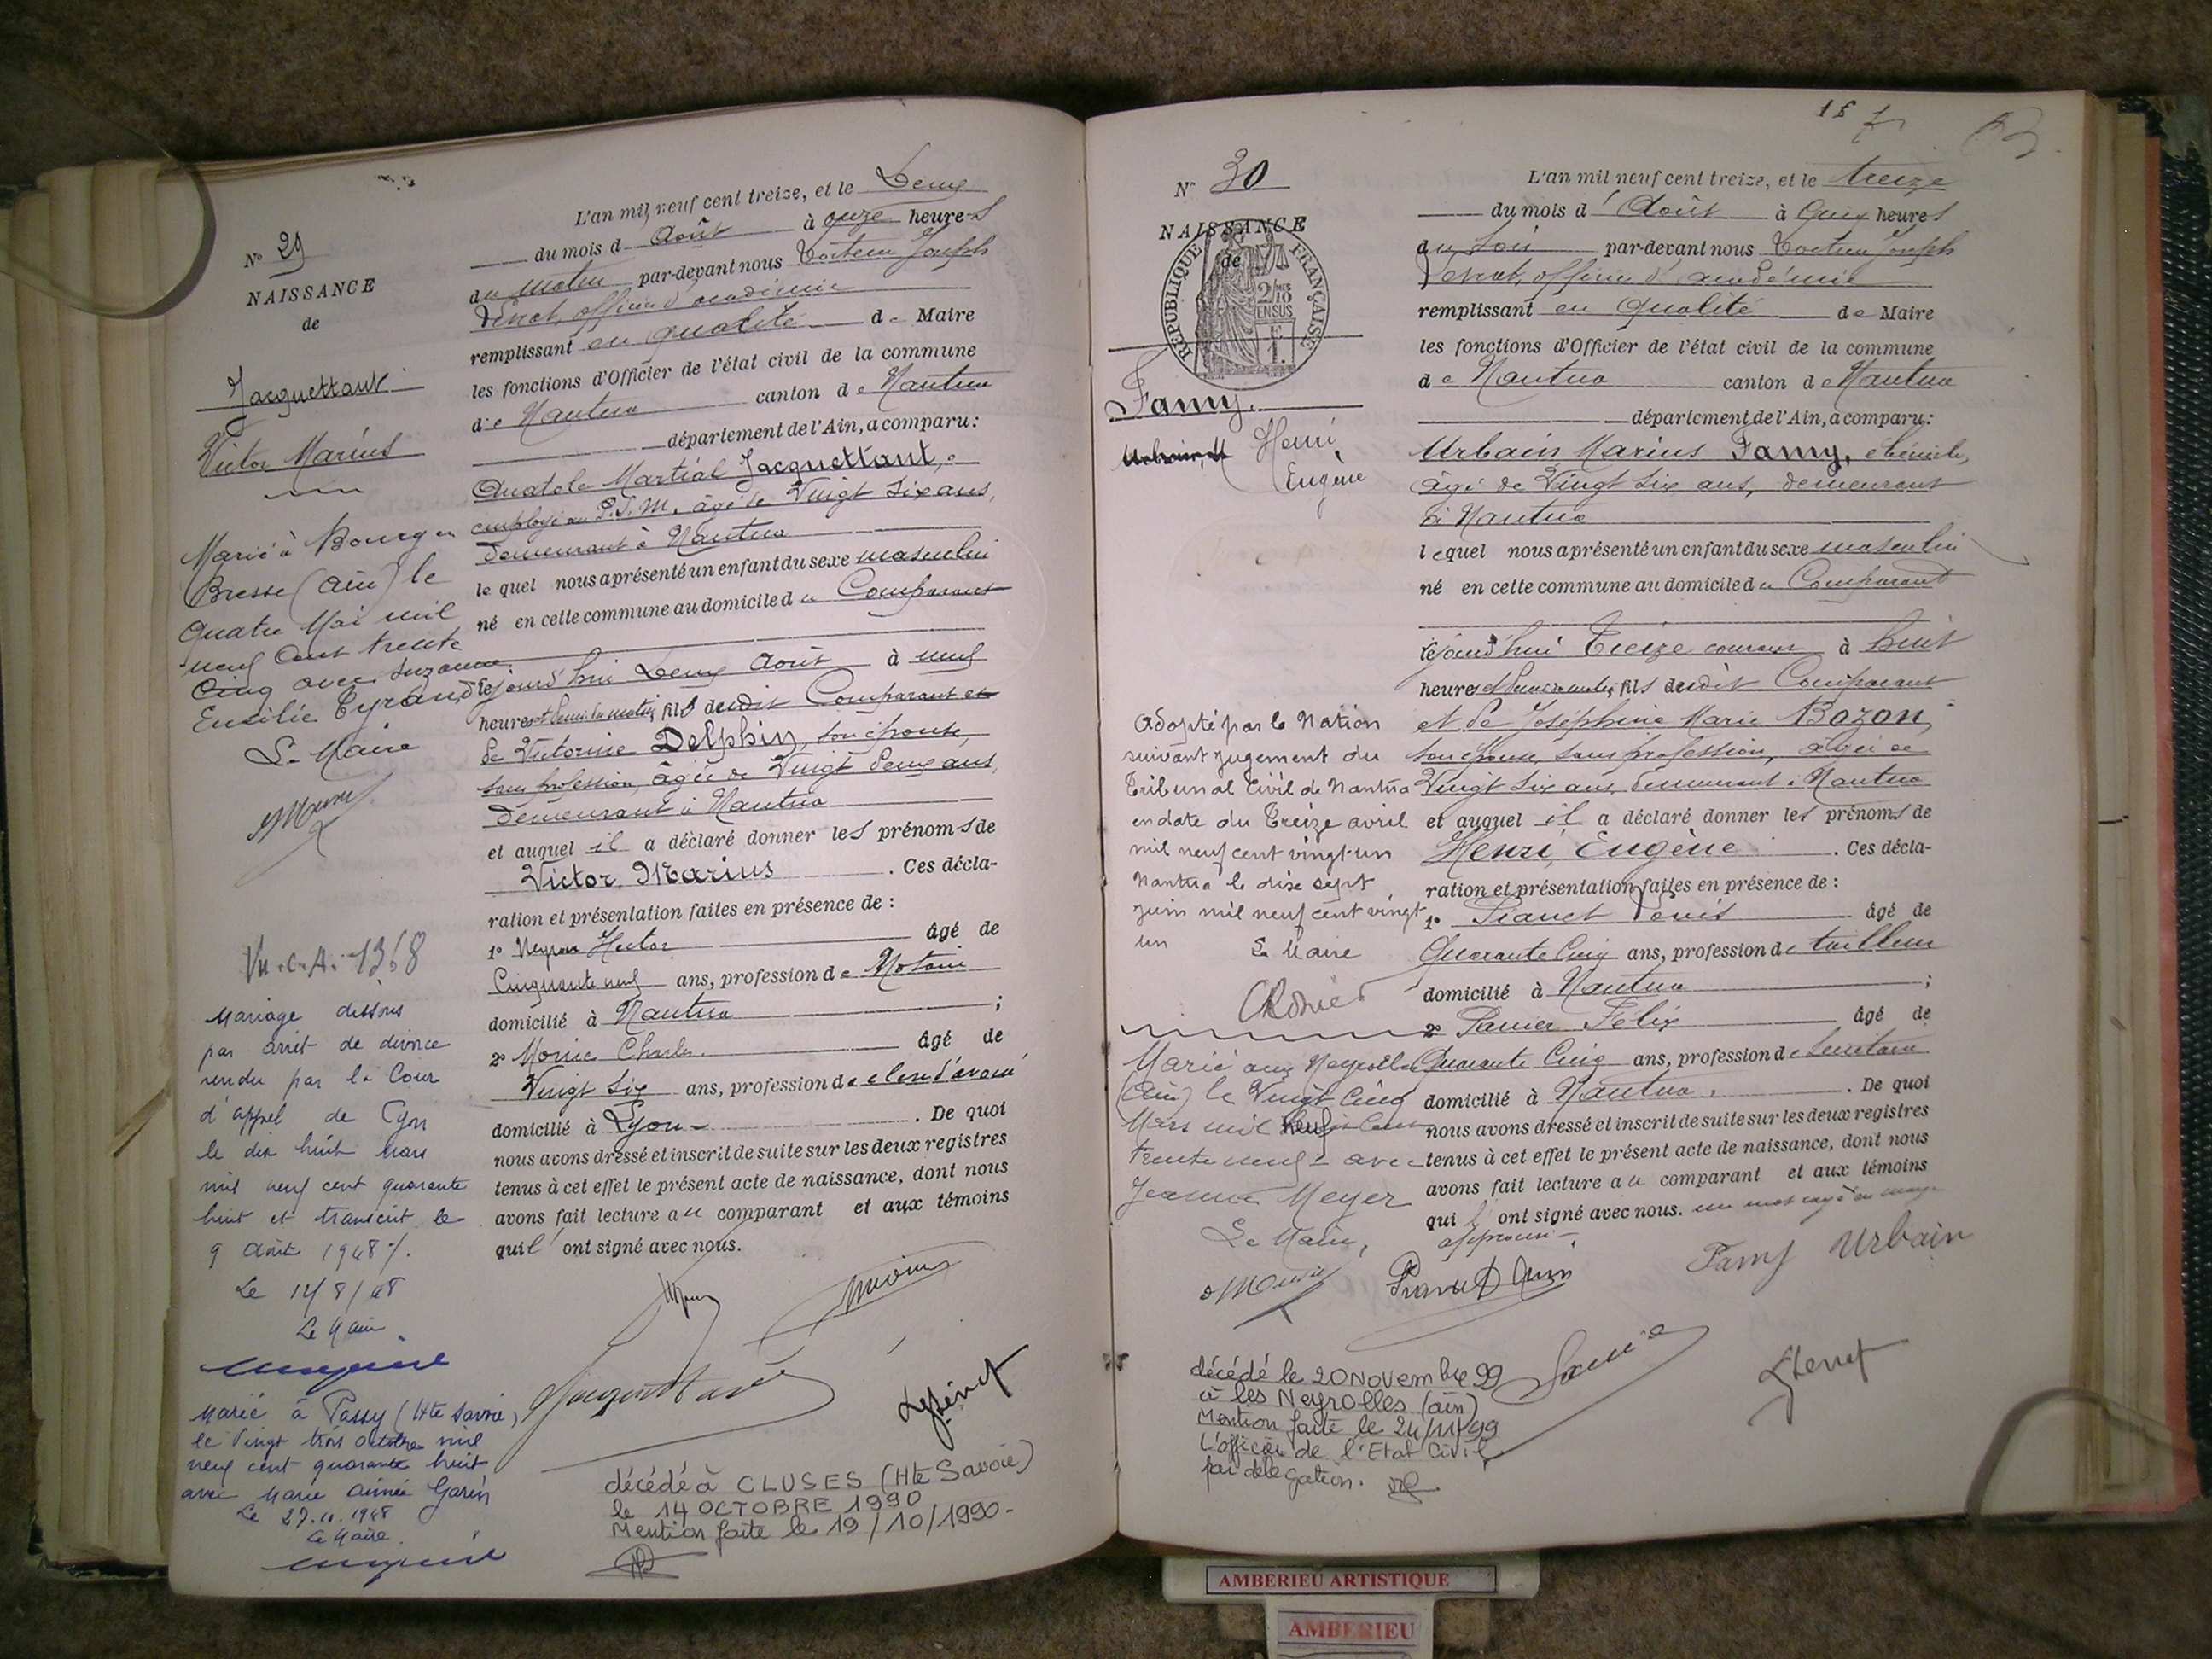 L'an mil neuf cent treize, et le Deux
du mois d Août à onze heures
du matin par-devant nous Docteur Joseph
officier d'académie
remplissant en qualité de Maire
les fonctions d'Officier de l'état civil de la commune
de Nantua canton de Nantua
département de l'Ain, a comparu :
Anatole Martial Jacquettant,
employé au P.L.M. âgé de Vingt six ans,
demeurant à Nantua
le quel nous a présenté un enfant du sexe masculin
né en cette commune au domicile du Comparant
cejourd'hui Deux Août à neuf
heures et demie du matin, fils dudit Comparant et
de Victorine Delphin, son épouse,
sans profession, âgée de Vingt deux ans,
demeurant à Nantua
et auquel il a déclaré donner les prénoms de
Victor, Marius . Ces décla-
ration et présentation faites en présence de :
1° Neyron Hector âgé de
Cinquante neuf ans, profession de Notaire
domicilié à Nantua ;
2° Charles âgé de
Vingt six ans, profession de clerc d'avoué
domicilié à Lyon . De quoi
nous avons dressé et inscrit de suite sur les deux registres
tenus à cet effet le présent acte de naissance, dont nous
avons fait lecture au comparant et aux témoins
qui l'ont signé avec nous.
N° 29
NAISSANCE
de
Jacquettant
Victor Marius
Marié à Bourg en
Bresse (Ain) le
quatre Mai mil
neuf cent trente
cinq avec Suzanne
Emilie Eyraud
Le Maire
Mariage dissous
par arrêt de divorce
rendu par la Cour
d'appel de Lyon
le dix huit Mars
mil neuf cent quarante
huit et transcrit le
9 Août 1948 /.
Le 12/8/48
Le Maire
Marié à Passy (Hte Savoie)
le vingt trois octobre mil
neuf cent quarante huit
avec Marie Aimée Garin
Le 27.10.1948
Le Maire
décédé à CLUSES (Hte Savoie)
le 14 OCTOBRE 1990
Mention faite le 19/10/1990-
N° 30
NAISSANCE
de
RÉPUBLIQUE FRANÇAISE
2/10
EN SUS
1 F.
Famy.
Henri
Eugène
L'an mil neuf cent treize, et le treize
du mois d'Août à Cinq heures
du soir par-devant nous Docteur Joseph
officier d'académie
remplissant en qualité de Maire
les fonctions d'Officier de l'état civil de la commune
de Nantua canton de Nantua
département de l'Ain, a comparu :
Urbain Marius Famy, ébéniste,
âgé de Vingt six ans, demeurant
à Nantua
lequel nous a présenté un enfant du sexe masculin
né en cette commune au domicile du Comparant
cejourd'hui Treize courant à huit
heures et demie du matin, fils dudit Comparant
et de Joséphine Marie Bozon,
son épouse, sans profession, âgée de
Vingt six ans, demeurant à Nantua
et auquel il a déclaré donner les prénoms de
Henri, Eugène . Ces décla-
ration et présentation faites en présence de :
1° Louis âgé de
Quarante Cinq ans, profession de tailleur
domicilié à Nantua ;
2° Félix âgé de
Quarante Cinq ans, profession de Secrétaire
domicilié à Nantua. . De quoi
nous avons dressé et inscrit de suite sur les deux registres
tenus à cet effet le présent acte de naissance, dont nous
avons fait lecture au comparant et aux témoins
qui l'ont signé avec nous. un mot rayé en marge
approuvé
Famy Urbain
Adopté par la Nation
suivant jugement du
Tribunal Civil de Nantua
en date du Treize avril
mil neuf cent vingt-un
Nantua le dix sept
juin mil neuf cent vingt
un
Le Maire
Marié aux Neyrolles
(Ain) le Vingt Cinq
Mars mil neuf Cent
trente neuf avec
Jeanne Meyer
Le Maire,
décédé le 20 Novembre 99
à les Neyrolles (ain)
Mention faite le 24/11/99
L'officier de l'Etat Civil
par délégation.
AMBERIEU ARTISTIQUE
AMBERIEU